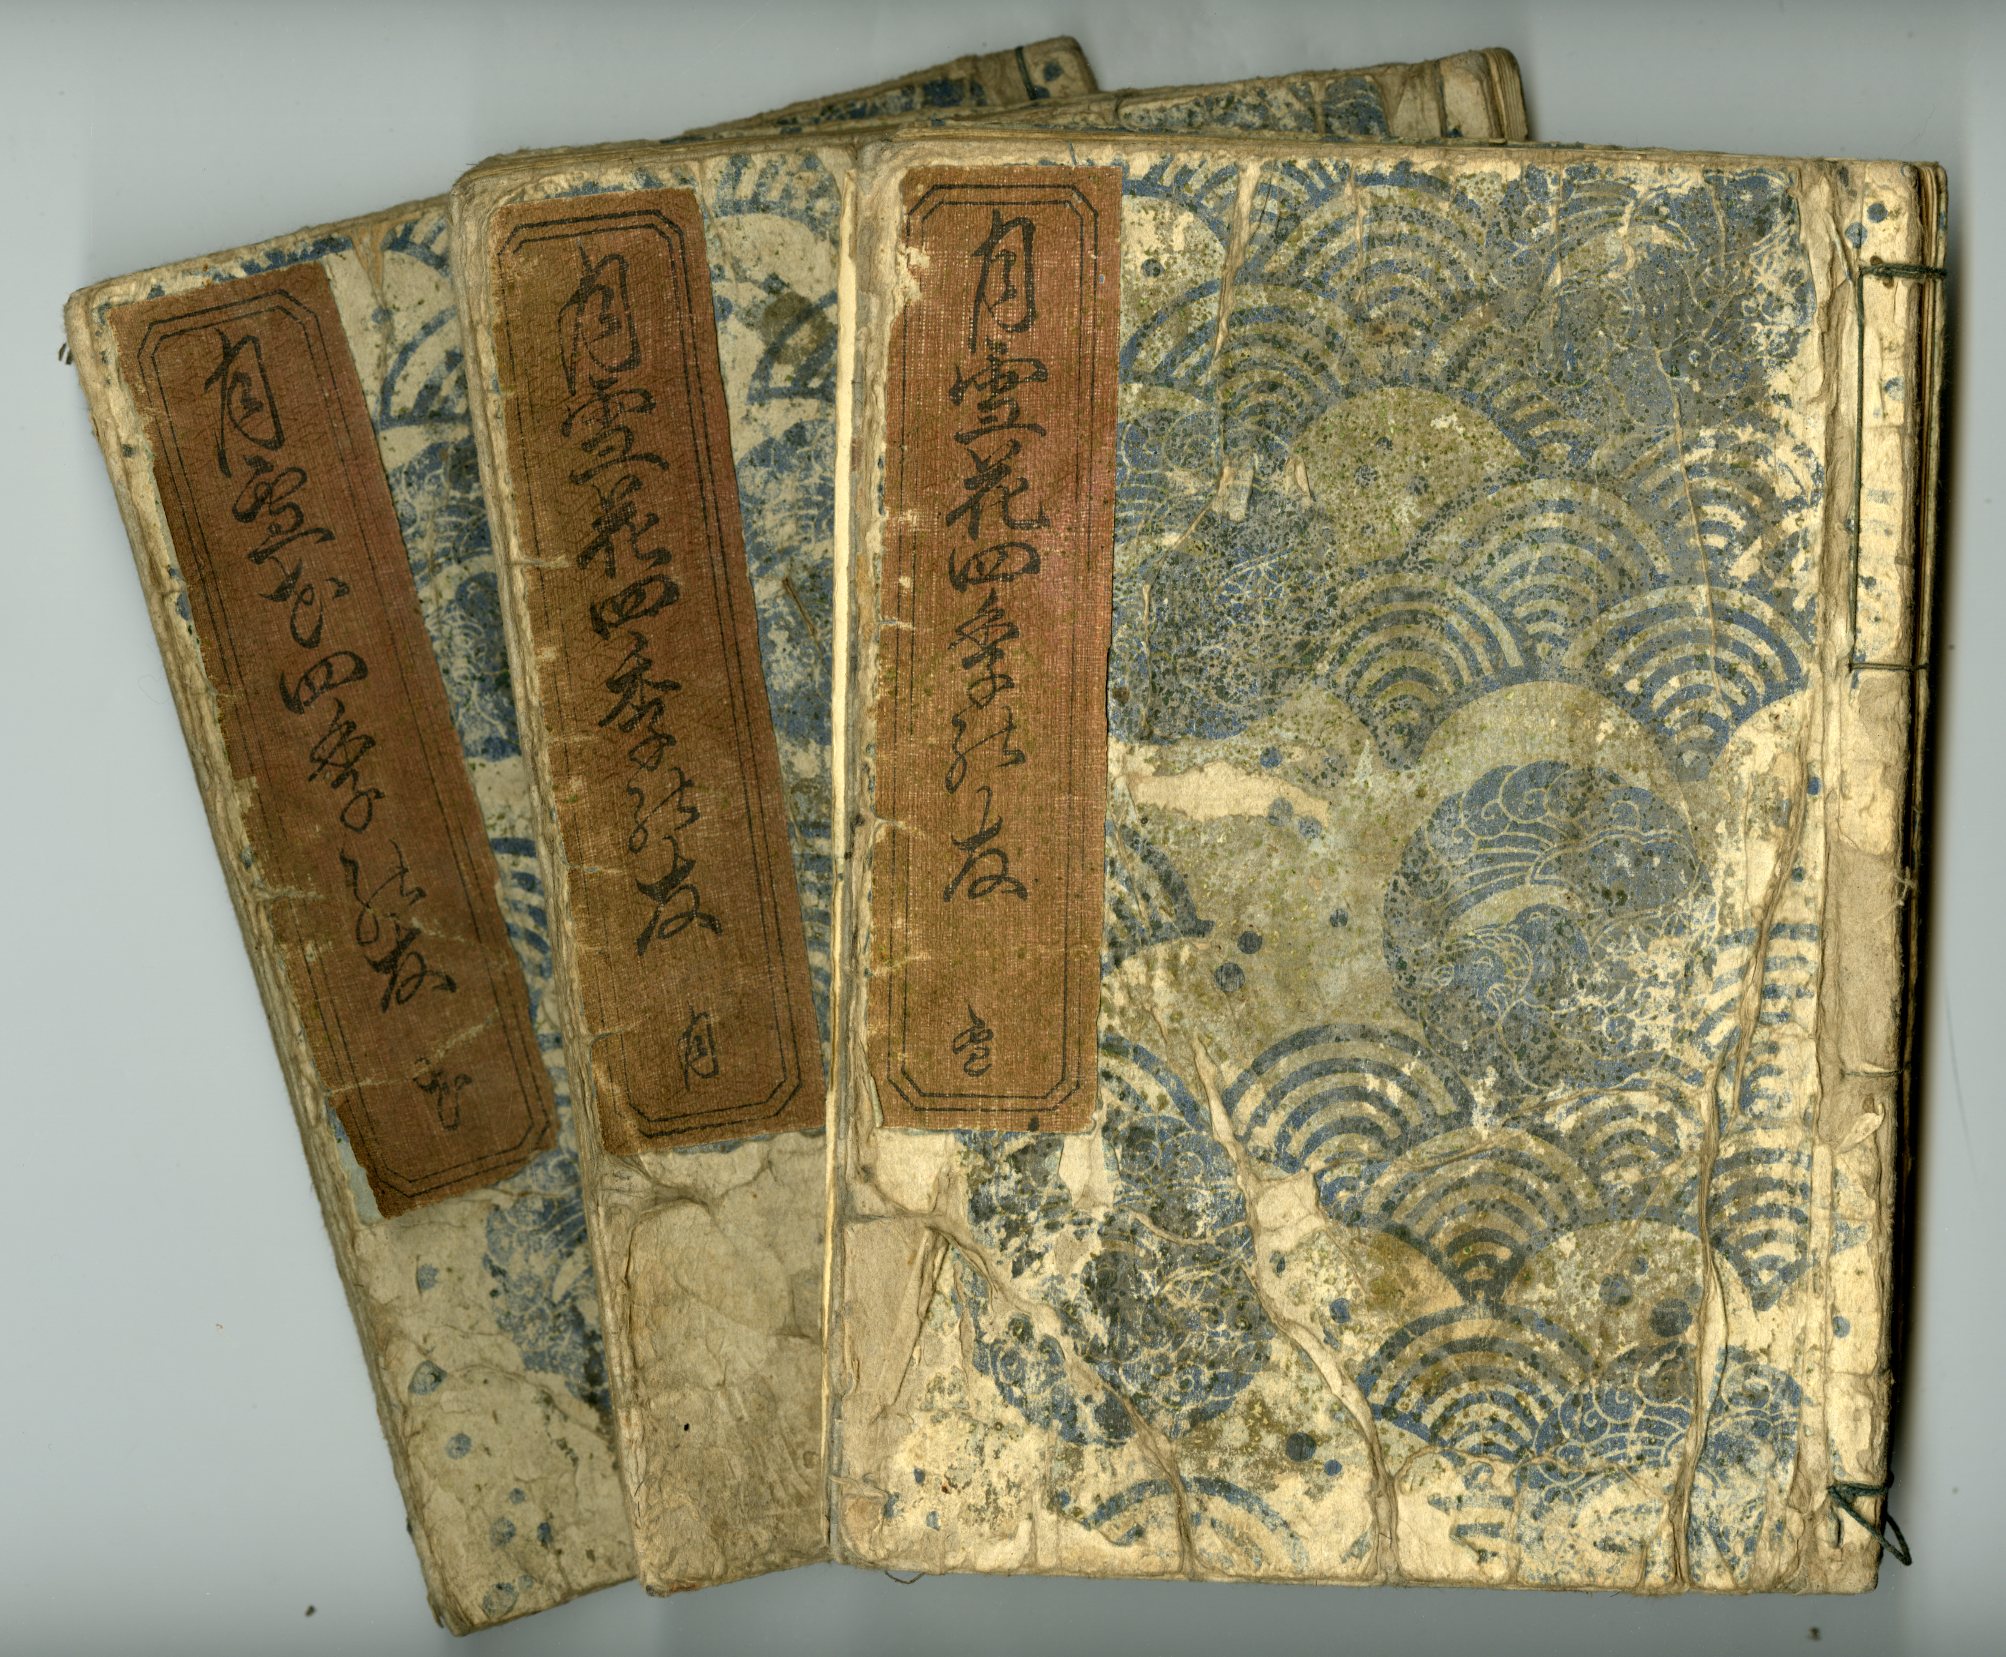 月雪花四季能友 雪
月雪花四季能友 月
月雪花四季能友 花